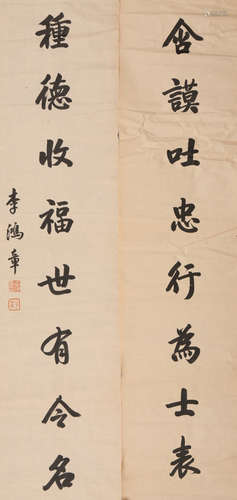 含謨吐忠行為士表
種德收福世有令名
李鴻章